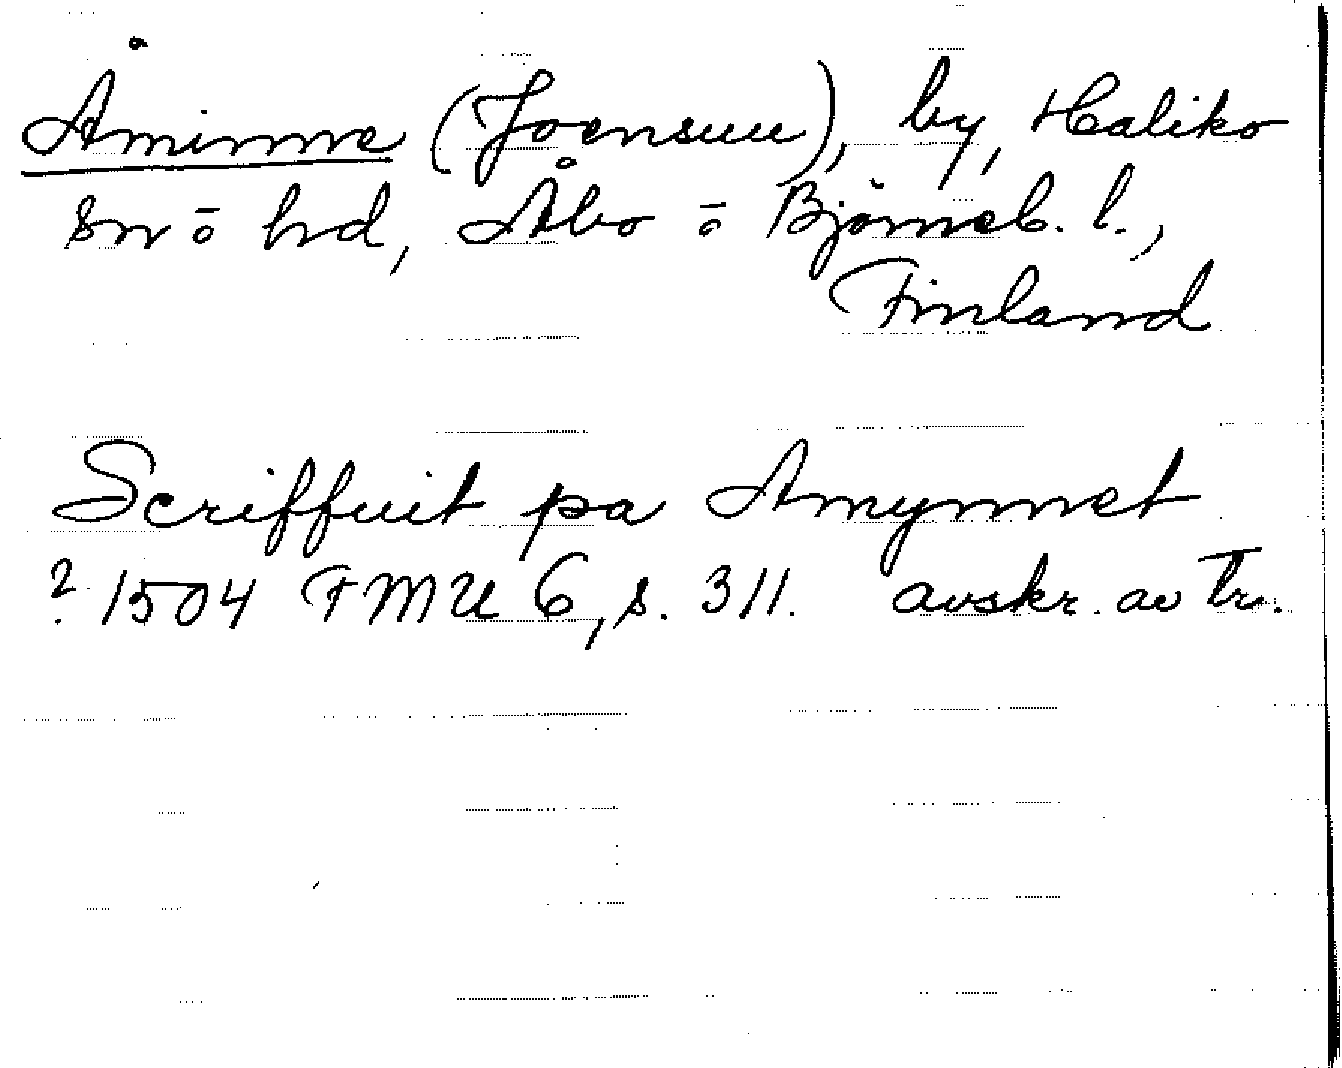 Åminne (Joensuu), by, Haliko
sn o hd, Åbo o Björneb. l.,
Finland
Scriffuit pa Amynnet
? 1504 FMU 6, s. 311. avskr. av tr.